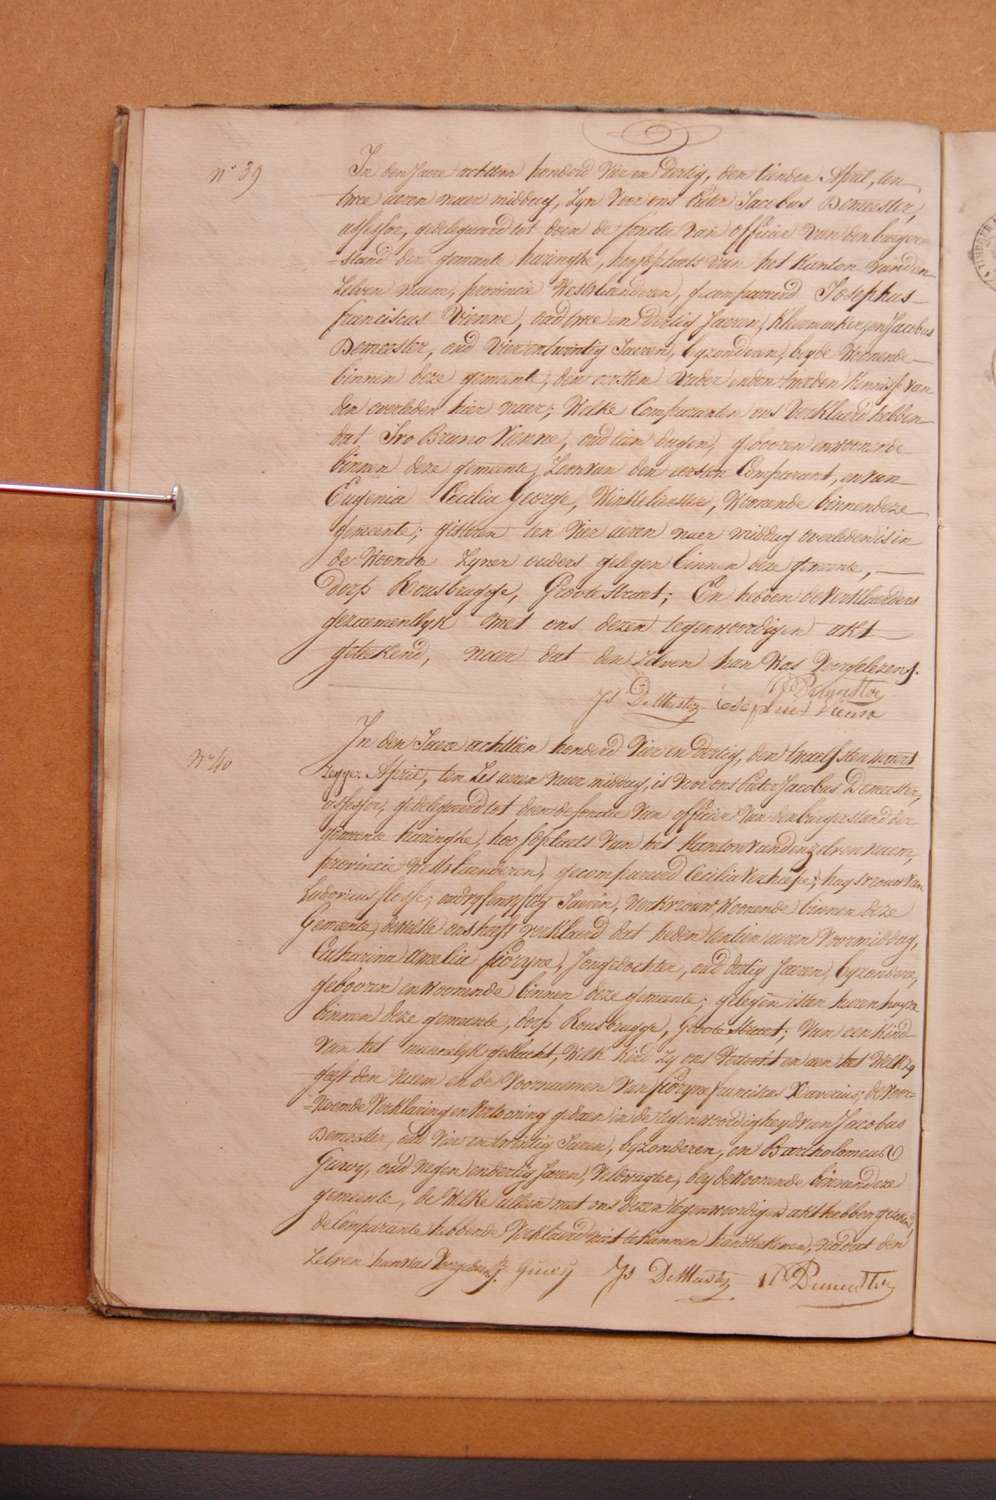 N° 39
In den Jaere achttien honderd Vier en Dertig, den tienden April, ten
twee ueren naer middag, Zyn Voor ons Pieter Jacobus Demeester,
assessor, gedelegueerd tot doen de fonctie van officier van den burgeren
-stand der gemeente haringhe, hoofdplaets van het Kanton van den
Zelven naem, provincie Westvlaenderen, gecompareerd Josephus
franciscus Vienne, oud twee en Dertig Jaeren, kleermaeker, en Jacobus
Demeester, oud Vier en twintig Jaeren, byzonderen, beyde Woonende
binnen deze gemeente, den eersten Vader en den tweeden Kennisse van
den overleden hier naer; Welke Comparanten ons Verklaerd hebben
dat Ivo Bruno Vienne, oud tien dagen, geboren en woonende
binnen deze gemeente, Zoon van den eersten Comparant, en van
Eugenia Cecilia George, Winkelierster, Woonende binnen deze
gemeente; gisteren ten Vier ueren naer middag overleden is in
de Woonste Zyner ouders gelegen binnen deze gemeente,
dorp Rousbrugge, Groote Straet; En hebben de Verklaerders
gezaementlyk met ons dezen tegenwoordigen akt
geteekend, naer dat den Zelven hun Was Voorgelezen.
PJ Demeester
Js DeMeester Joseph Vienne
N° 40
In den Jaere achttien honderd Vier en Dertig, den twaelfsten maert
Zegge: April, ten Zes ueren naer middag, is voor ons Pieter Jacobus Demeester,
assessor, gedelegueerd tot doen de fonctie van officier van den burgerstand der
gemeente haringhe, hoofdplaets van het Kanton van den zelven naem,
provincie Westvlaenderen, gecompareerd Cecilia huysvrouw van
Ludovicus oud Jaeren, Vroedvrouw, Woonende binnen deze
Gemeente, dewelke ons heeft verklaerd dat heden ten tien ueren Voormiddag,
Catharina Amelia fioryne, Jongedochter, oud dertig Jaeren, byzondere,
geboren en woonende binnen deze gemeente; gelegen is in haeren huyze
binnen deze gemeente, dorp Rousbrugge, Groote Straet; Van een Kind
Van het mannelyk geslacht, Welk Kind Zy ons Vertoont en aen het Welk Zy
geeft den Naem en de Voornaemen Van fioryne franciscus Xaverius; de Voor-
-noemde Verklaering en Vertooning gedaen in de tegenwoordigheyd van Jacobus
Demeester, oud Vier en twintig Jaeren, byzonderen, en Bartholomeus
Guwy, oud negen en dertig Jaeren, Veldwagter, beyde Woonende binnen deze
gemeente, de Welke alleen met ons dezen tegenwoordigen akt hebben geteekend,
de Comparante hebbende Verklaerd niet te kunnen handteekenen, nadat den
Zelven hun Was Voorgelezen. B. Guwy Js DeMeester PJ Demeester